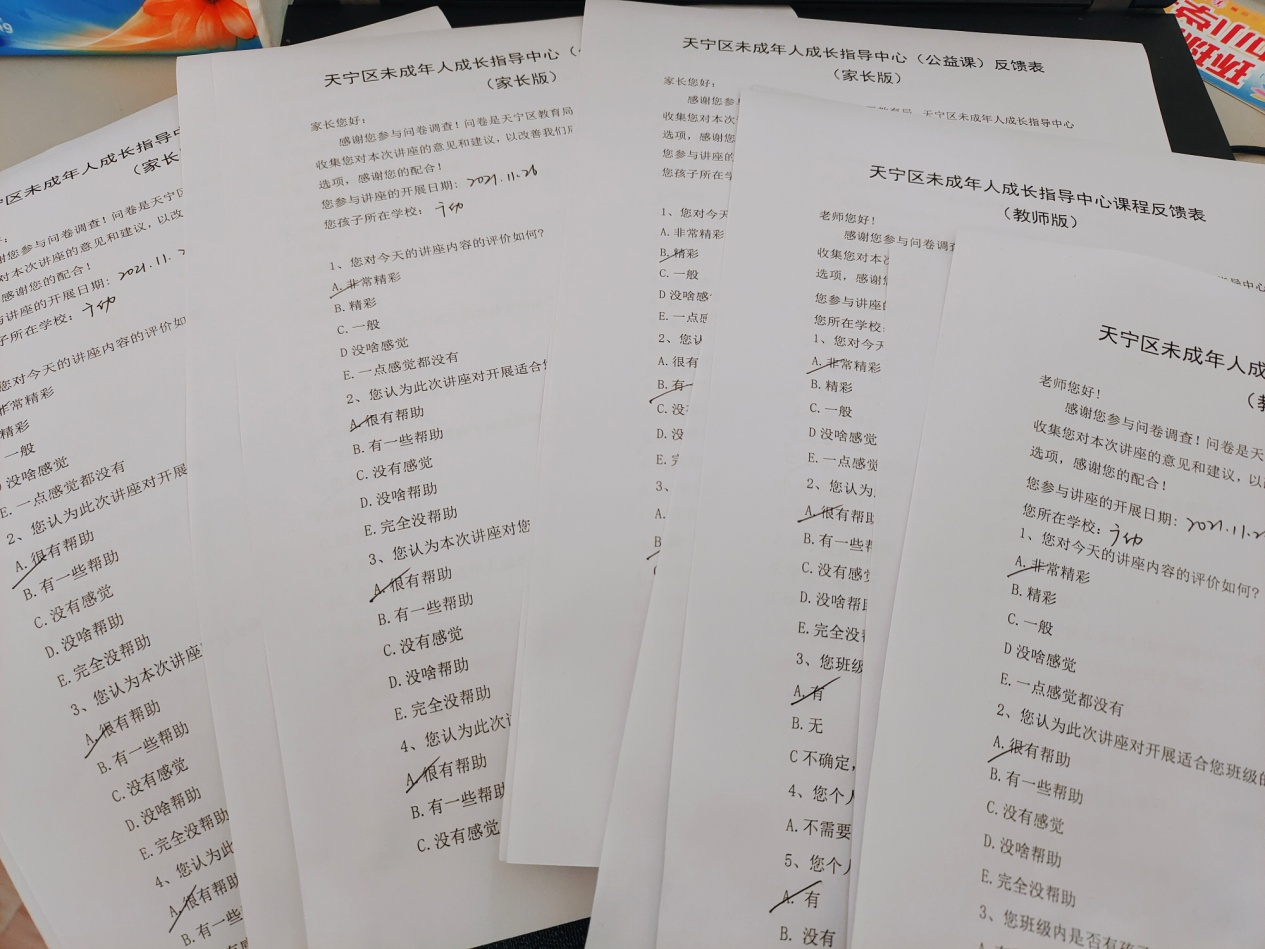 区未成年人成长指导中
（家长
谢您参与问卷调查！问卷是天宁区
对本次讲座的意见和建议，以改
感谢您的配合！
讲座的开展日期：2021.11.2
子所在学校：
您对今天的讲座内容的评价如
非常精彩
精彩
一般
没啥感觉
E.一点感觉都没有
2、您认为此次讲座对开展
A.很有帮助
B.有一些帮助
C.没有感觉
D.没啥帮助
E.完全没帮助
3、您认为本次讲座
A.很有帮助
B.有一些帮助
C.没有感觉
D.没啥帮助
E.完全没帮助
4、您认为此
A.很有帮助
B.有一些
天宁区未成年人成长指导中心（
（家长版）
家长您好：
感谢您参与问卷调查！问卷是天宁区教育局
收集您对本次讲座的意见和建议，以改善我们后
选项，感谢您的配合！
您参与讲座的开展日期：2021.11.26
您孩子所在学校：
1、您对今天的讲座内容的评价如何？
A.非常精彩
B.精彩
C.一般
D 没啥感觉
E.一点感觉都没有
2、您认为此次讲座对开展适合
A.很有帮助
B.有一些帮助
C.没有感觉
D.没啥帮助
E.完全没帮助
3、您认为本次讲座对您
A.很有帮助
B.有一些帮助
C.没有感觉
D.没啥帮助
E.完全没帮助
4、您认为此次
A.很有帮助
B.有一些帮助
C.没有感觉
天宁区未成年人成长指导中心（公益课）反馈表
（家长版）
家长您好：
感谢您参
天宁区未成年人成长指导中心
收集您对本次
选项，感谢您
您参与讲座的
您孩子所在学
1、您对今天
A.非常精彩
B.精彩
C.一般
D 没啥感
E.一点
2、您认
A.很有
B.有一
C.没
D.没
E.
3、
A.
B
天宁区未成年人成长指导中心课程反馈表
（教师版）
老师您好！
感谢您参与问卷
收集您对本
选项，感谢
您参与讲座
您所在学校
1、您对今天
A.非常精彩
B.精彩
C.一般
D 没啥感觉
E.一点感觉
2、您认为
A.很有帮助
B.有一些
C.没有感
D.没啥帮
E.完全没
3、您班级
A.有
B.无
C 不确定，
4、您个人
A.不需要
5、您个人
A.有
B.没有
天宁区未成年人成
老师您好！
感谢您参与问卷调查！问卷是天
收集您对本次讲座的意见和建议，以
选项，感谢您的配合！
您参与讲座的开展日期：2021.11.2
您所在学校：
1、您对今天的讲座内容的评价如何？
A.非常精彩
B.精彩
C.一般
D 没啥感觉
E.一点感觉都没有
2、您认为此次讲座对开展适合您班级的
A.很有帮助
B.有一些帮助
C.没有感觉
D.没啥帮助
E.完全没帮助
3、您班级内是否有孩